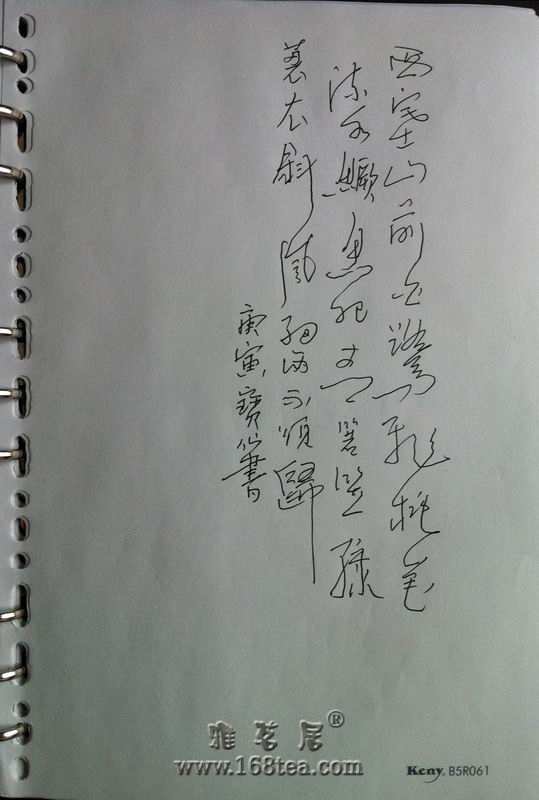 西塞山前白鷺飛桃花
流水鱖魚肥青箬笠綠
蓑衣斜風細雨不須歸
庚寅寶書
雅茗居®
www.168tea.com
Keny® B5R061